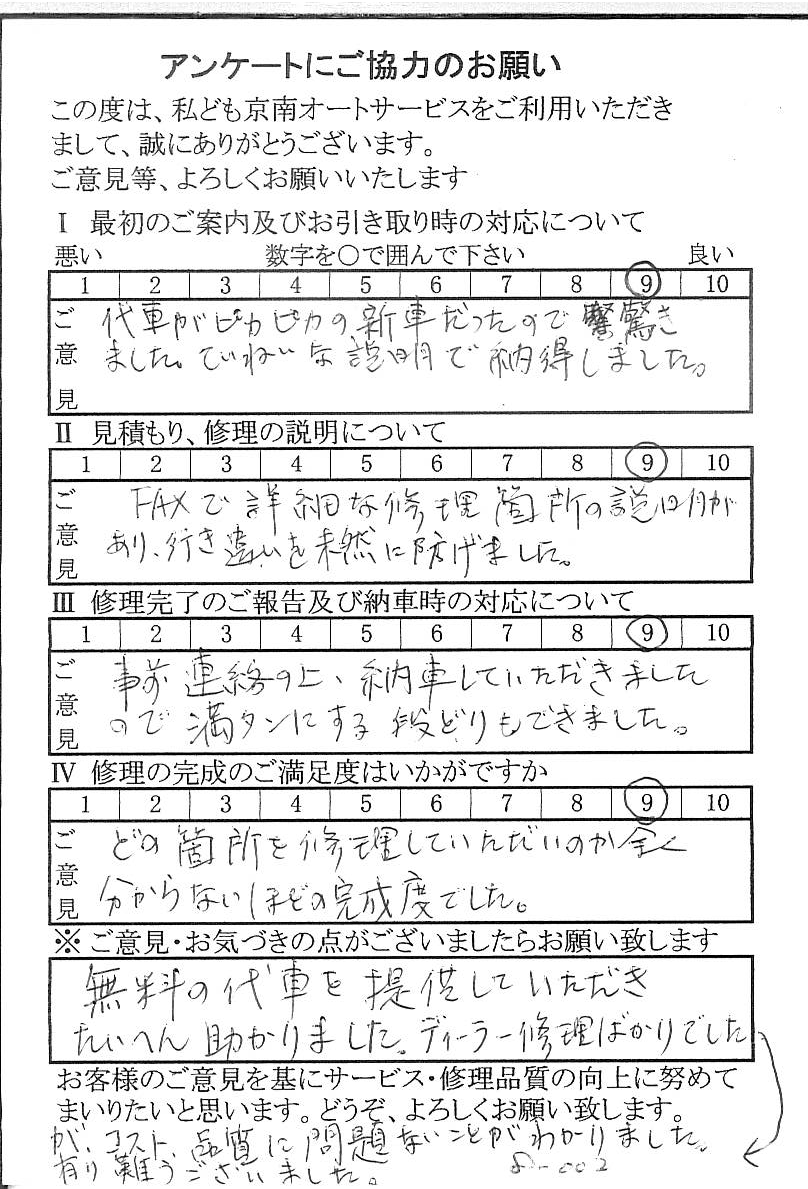 アンケートにご協力のお願い
この度は、私ども京南オートサービスをご利用いただき
まして、誠にありがとうございます。
ご意見等、よろしくお願いいたします
Ⅰ 最初のご案内及びお引き取り時の対応について
悪い 数字を○で囲んで下さい 良い
1 2 3 4 5 6 7 8 9 10
ご意見
代車がピカピカの新車だったので驚き
ました。ていねいな説明で納得しました。
Ⅱ 見積もり、修理の説明について
1 2 3 4 5 6 7 8 9 10
ご意見
FAXで詳細な修理箇所の説明が
あり、行き違いを未然に防げました。
Ⅲ 修理完了のご報告及び納車時の対応について
1 2 3 4 5 6 7 8 9 10
ご意見
事前連絡の上、納車していただきました
ので満タンにする段どりもできました。
Ⅳ 修理の完成のご満足度はいかがですか
1 2 3 4 5 6 7 8 9 10
ご意見
どの箇所を修理していただいのか全く
分からないほどの完成度でした。
※ ご意見・お気づきの点がございましたらお願い致します
無料の代車を提供していただき
たいへん助かりました。ディーラー修理ばかりでした
お客様のご意見を基にサービス・修理品質の向上に努めて
まいりたいと思います。どうぞ、よろしくお願い致します。
が、コスト、品質に問題ないことがわかりました。
有り難うございました。